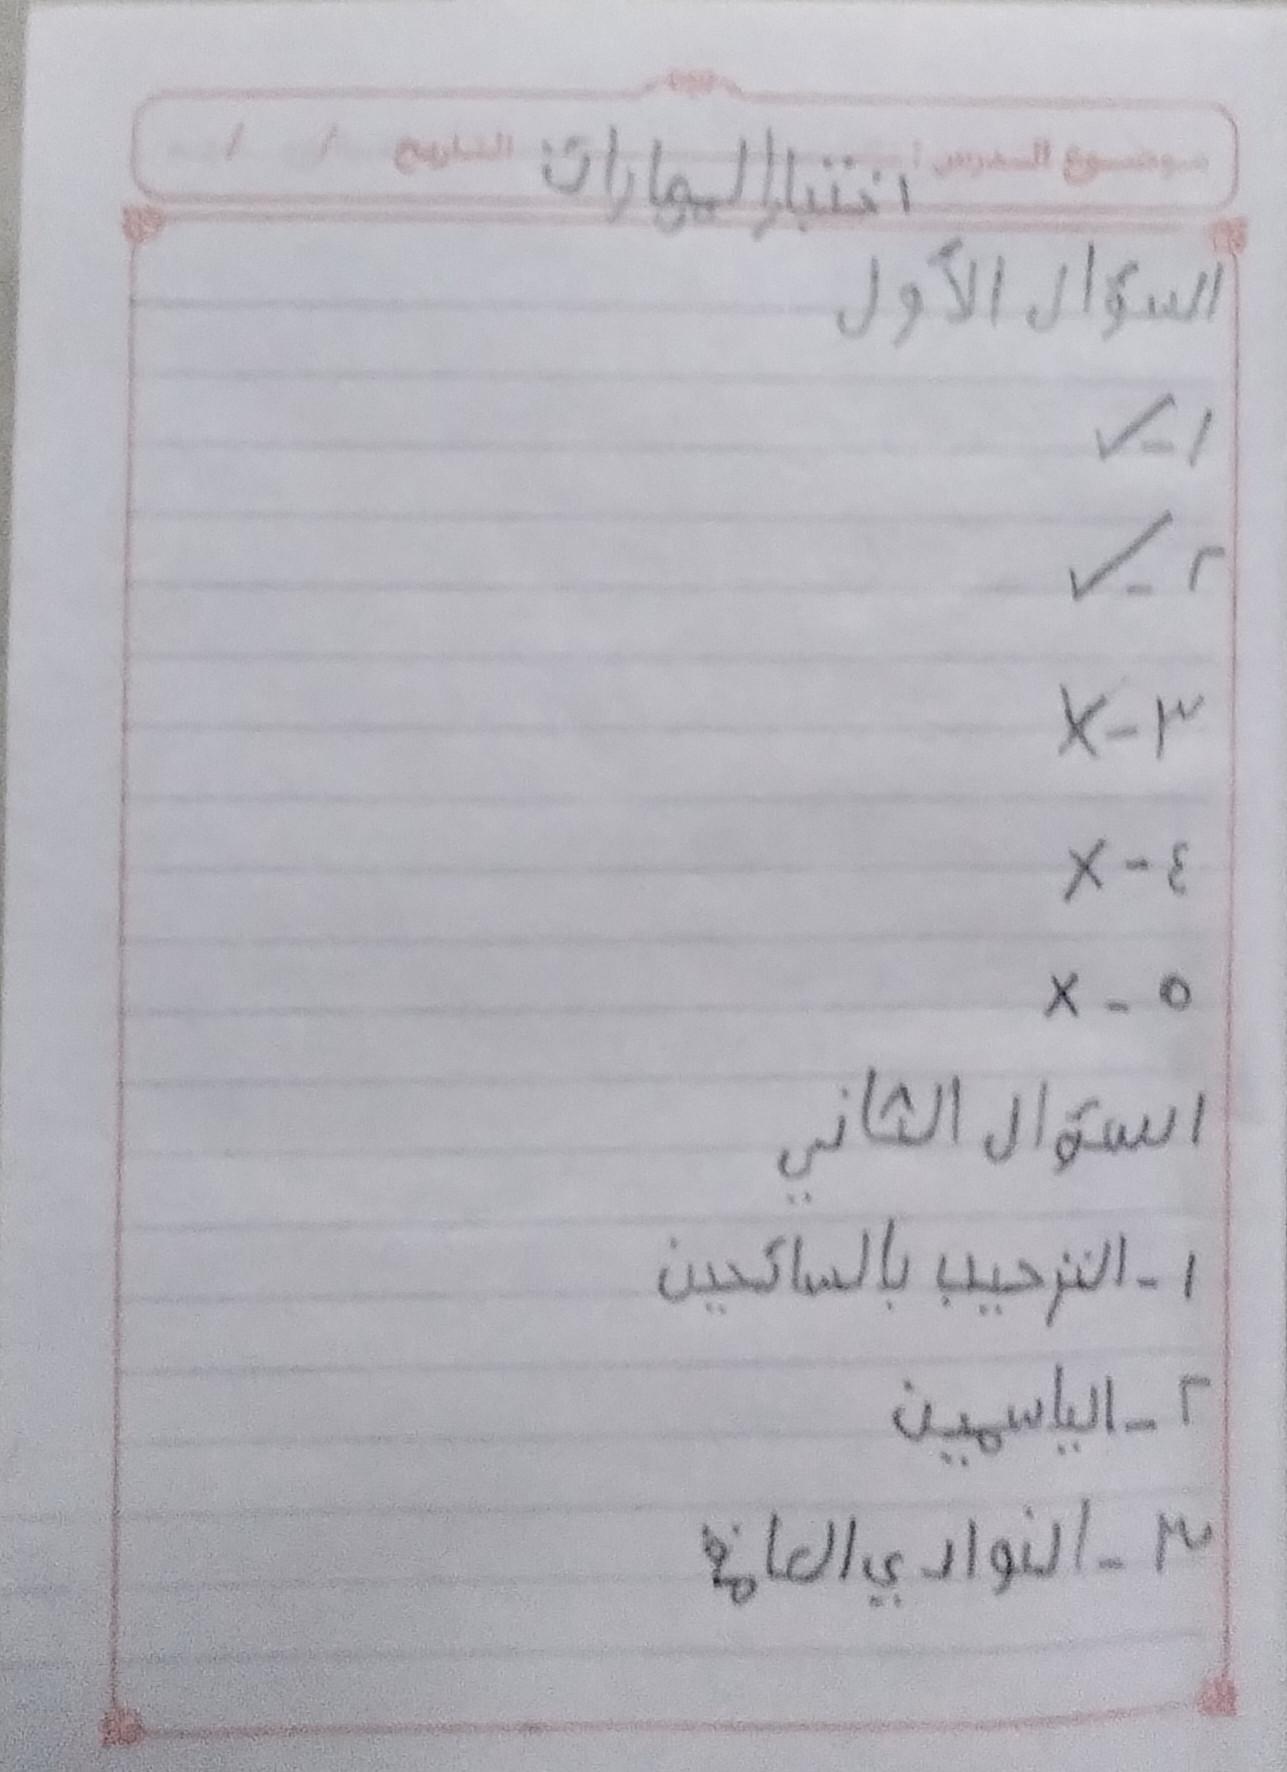 موضوع الدرس : التاريخ / /
اختبار المهارات
السؤال الأول
١- ✓
٢- ✓
٣- X
٤- X
٥- X
السؤال الثاني
١- الترحيب بالسائحين
٢- الياسمين
٣- النوادي العامة